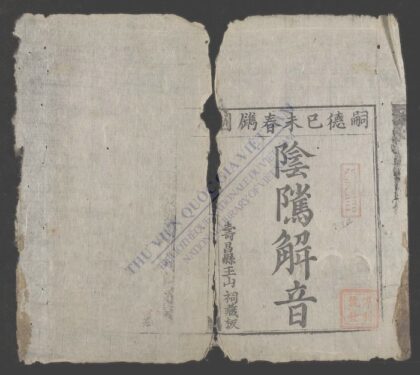 嗣德己未春鐫
陰隲解音
壽昌縣玉山祠藏板
THƯ VIỆN QUỐC GIA VIỆT NAM
BIBLIOTHÈQUE NATIONALE DU VIETNAM
NATIONAL LIBRARY OF VIETNAM